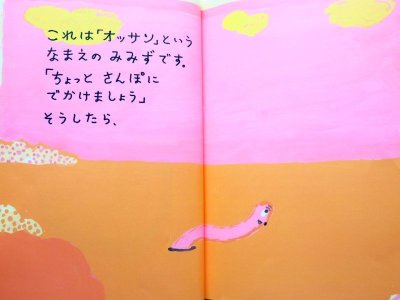 これは「オッサン」という
なまえの みみずです。
「ちょっと さんぽに
でかけましょう」
そうしたら、